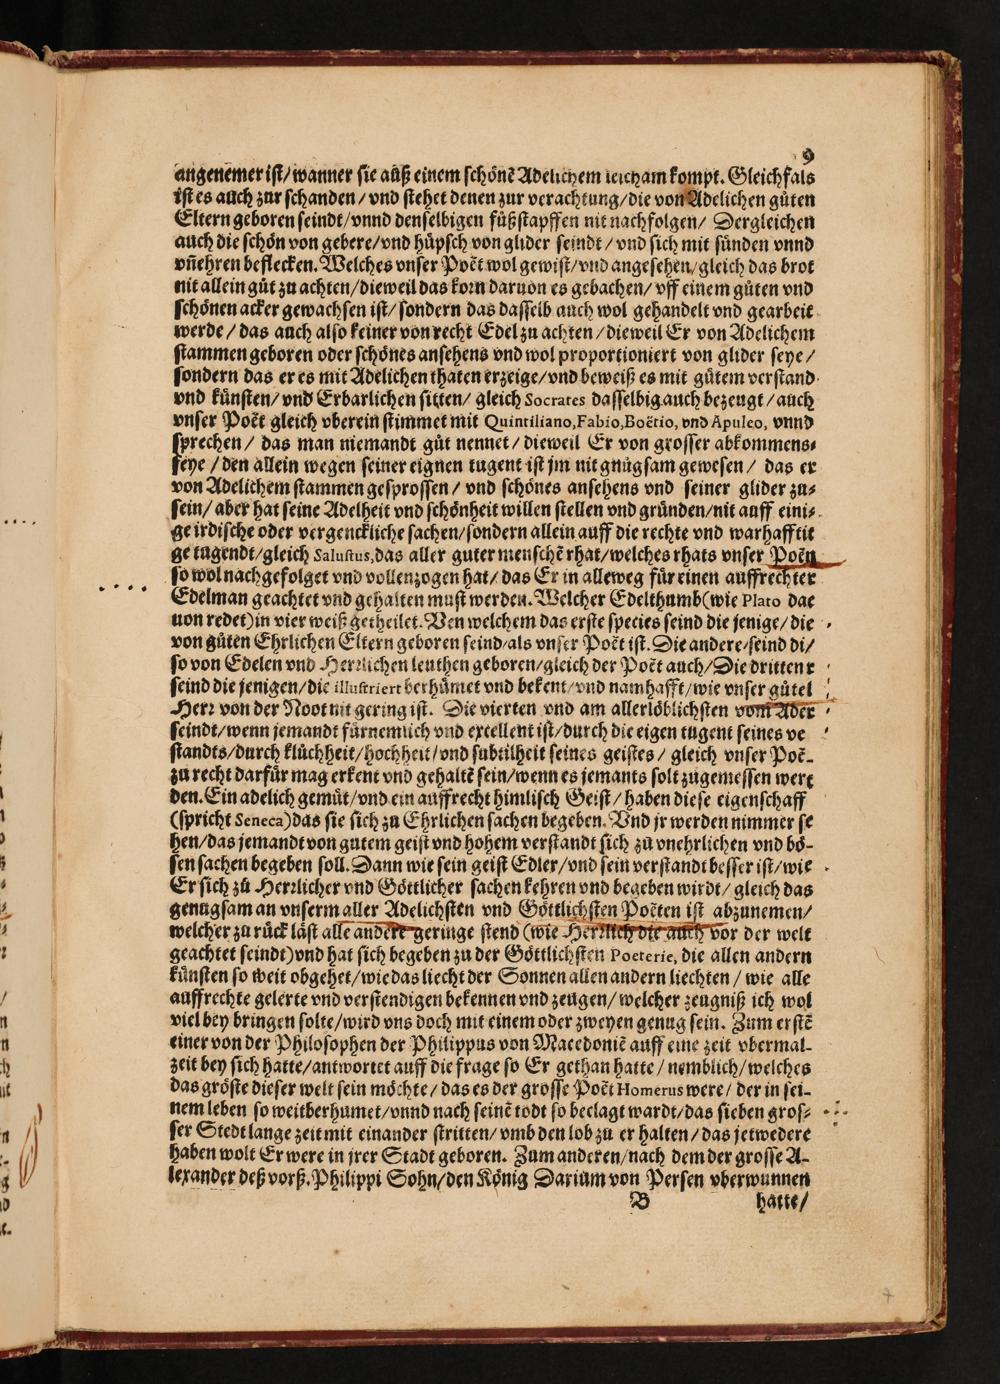 9
angenemer ist/wanner sie auß einem schönē Adelichem leichnam kompt. Gleichfals
ist es auch zur schanden/vnd stehet denen zur verachtung/die von Adelichen gůten
Eltern geboren seindt/vnnd denselbigen fůßstapffen nit nachfolgen/ Dergleichen
auch die schön von gebere/vnd hüpsch von glider seindt/vnd sich mit sünden vnnd
vnehren beflecken. Welches vnser Poët wol gewist/vnd angesehen/gleich das brot
nit allein gůt zu achten/dieweil das korn daruon es gebachen/vff einem gůten vnd
schönen acker gewachsen ist/sondern das dasselb auch wol gehandelt vnd gearbeit
werde/das auch also keiner von recht Edel zu achten/dieweil Er von Adelichem
stammen geboren oder schönes ansehens vnd wol proportioniert von glider seye/
sondern das er es mit Adelichen thaten erzeige/vnd beweiß es mit gůtem verstand
vnd künsten/vnd Erbarlichen sitten/gleich Socrates dasselbig auch bezeugt/auch
vnser Poët gleich vberein stimmet mit Quintiliano, Fabio, Boëtio, vnd Apuleo, vnnd
sprechen/ das man niemandt gůt nennet/dieweil Er von grosser abkommens⸗
seye/den allein wegen seiner eignen tugent ist jm nit gnůgsam gewesen/ das er
von Adelichem stammen gesprossen/ vnd schönes ansehens vnd seiner glider zu⸗
sein/aber hat seine Adelheit vnd schönheit willen stellen vnd gründen/nit auff eini⸗
ge irdische oder vergenckliche sachen/sondern allein auff die rechte vnd warhafftit
ge tugendt/gleich Salustus, das aller guter menschē rhat/welches rhats vnser Poën
so wol nachgefolget vnd vollenzogen hat/das Er in alleweg für einen auffrechter
Edelman geachtet vnd gehalten must werden. Welcher Edelthumb(wie Plato dae
uon redet)in vier weiß getheilet. Ven welchem das erste species seind die jenige/die
von gůten Ehrlichen Eltern geboren seind/als vnser Poët ist. Die andere/seind di/
so von Edelen vnd Herrlichen leuthen geboren/gleich der Poët auch/Die dritten r
seind die jenigen/die illustriert berhümet vnd bekent/vnd namhafft/wie vnser gůtel
Herr von der Noot nit gering ist. Die vierten vnd am allerlöblichsten vom Ader
seindt/wenn jemandt fürnemlich vnd excellent ist/durch die eigen tugent seines ve
standts/durch klůchheit/hochheit/vnd subtilheit seines geistes/ gleich vnser Poë-
zu recht darfür mag erkent vnd gehaltē sein/wenn es jemants solt zugemessen wert
den. Ein adelich gemüt/vnd ein auffrecht himlisch Geist/haben diese eigenschaff
(spricht Seneca)das sie sich zu Ehrlichen sachen begeben. Vnd jr werden nimmer se
hen/das jemandt von gutem geist vnd hohem verstandt sich zu vnehrlichen vnd bö-
sen sachen begeben soll. Dann wie sein geist Edler/vnd sein verstandt besser ist/wie
Er sich zů Herrlicher vnd Göttlicher sachen kehren vnd begeben wirdt/gleich das
genugsam an vnserm aller Adelichsten vnd Göttlichsten Poëten ist abzunemen/
welcher zu rück läst alle andere geringe stend (wie Herrlich die auch vor der welt
geachtet seindt)vnd hat sich begeben zu der Göttlichsten Poeterie, die allen andern
künsten so weit obgehet/wie das liecht der Sonnen allen andern liechten/ wie alle
auffrechte gelerte vnd verstendigen bekennen vnd zeugen/welcher zeugniß ich wol
viel bey bringen solte/wird vns doch mit einem oder zweyen genug sein. Zum erstē
einer von der Philosophen der Philippus von Macedoniē auff eine zeit vbermal-
zeit bey sich hatte/antwortet auff die frage so Er gethan hatte/ nemblich/welches
das gröste dieser welt sein möchte/das es der grosse Poët Homerus were/ der in sei-
nem leben so weitberhumet/vnnd nach seinē todt so beclagt wardt/das sieben gros⸗
ser Stedt lange zeit mit einander stritten/vmb den lob zu er halten/das jetwedere
haben wolt Er were in jrer Stadt geboren. Zum anderen/nach dem der grosse A-
lexander deß vorß. Philippi Sohn/den König Darium von Persen vberwunnen
B hatte/